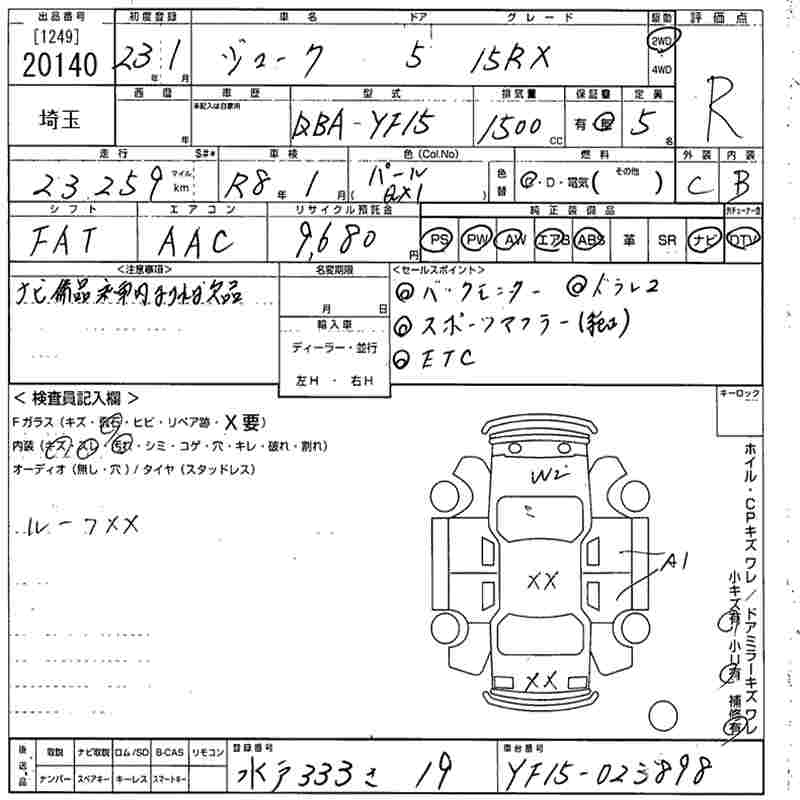 出品番号 初度登録 車名 ドア グレード 駆動 評価点
[1249]
20140 23年 1月 ジューク 5 15RX 2WD 4WD R
埼玉 西暦 年 車歴 未記入は自家用 型式 DBA-YF15 排気量 1500 CC 保証書 有・無 定員 5名
走行 23,259 マイル km S#* 車検 R8年 1月 色(Col.No) (パール QX1) 色替 燃料 G・D・電気( その他 ) 外装 C 内装 B
シフト FAT エアコン AAC リサイクル預託金 9,680円 純正装備品 PS PW AW エアB ABS 革 SR ナビ DTV
<注意事項> 名変期限 <セールスポイント>
ナビ備品車両内なければ欠品 月 日 ◎バックモニター ◎ドラレコ
輸入車 ◎スポーツマフラー(純正)
ディーラー・並行 ◎ETC
左H ・ 右H
<検査員記入欄> キーロック
Fガラス(キズ・飛石・ヒビ・リペア跡・X要)
内装(キズ・スレ・汚れ・シミ・コゲ・穴・キレ・破れ・割れ)
オーディオ(無し・穴)/タイヤ(スタッドレス)
ルーフXX
W2
A1
XX
XX
ホイル・CPキズワレ/ドアミラーキズワレ
小キズ有/小U有 補修有
後送品 取説 ナビ取説 ロム/SD B-CAS リモコン 登録番号 車台番号
ナンバー スペアキー キーレス スマートキー 水戸 333 さ 19 YF15-023898